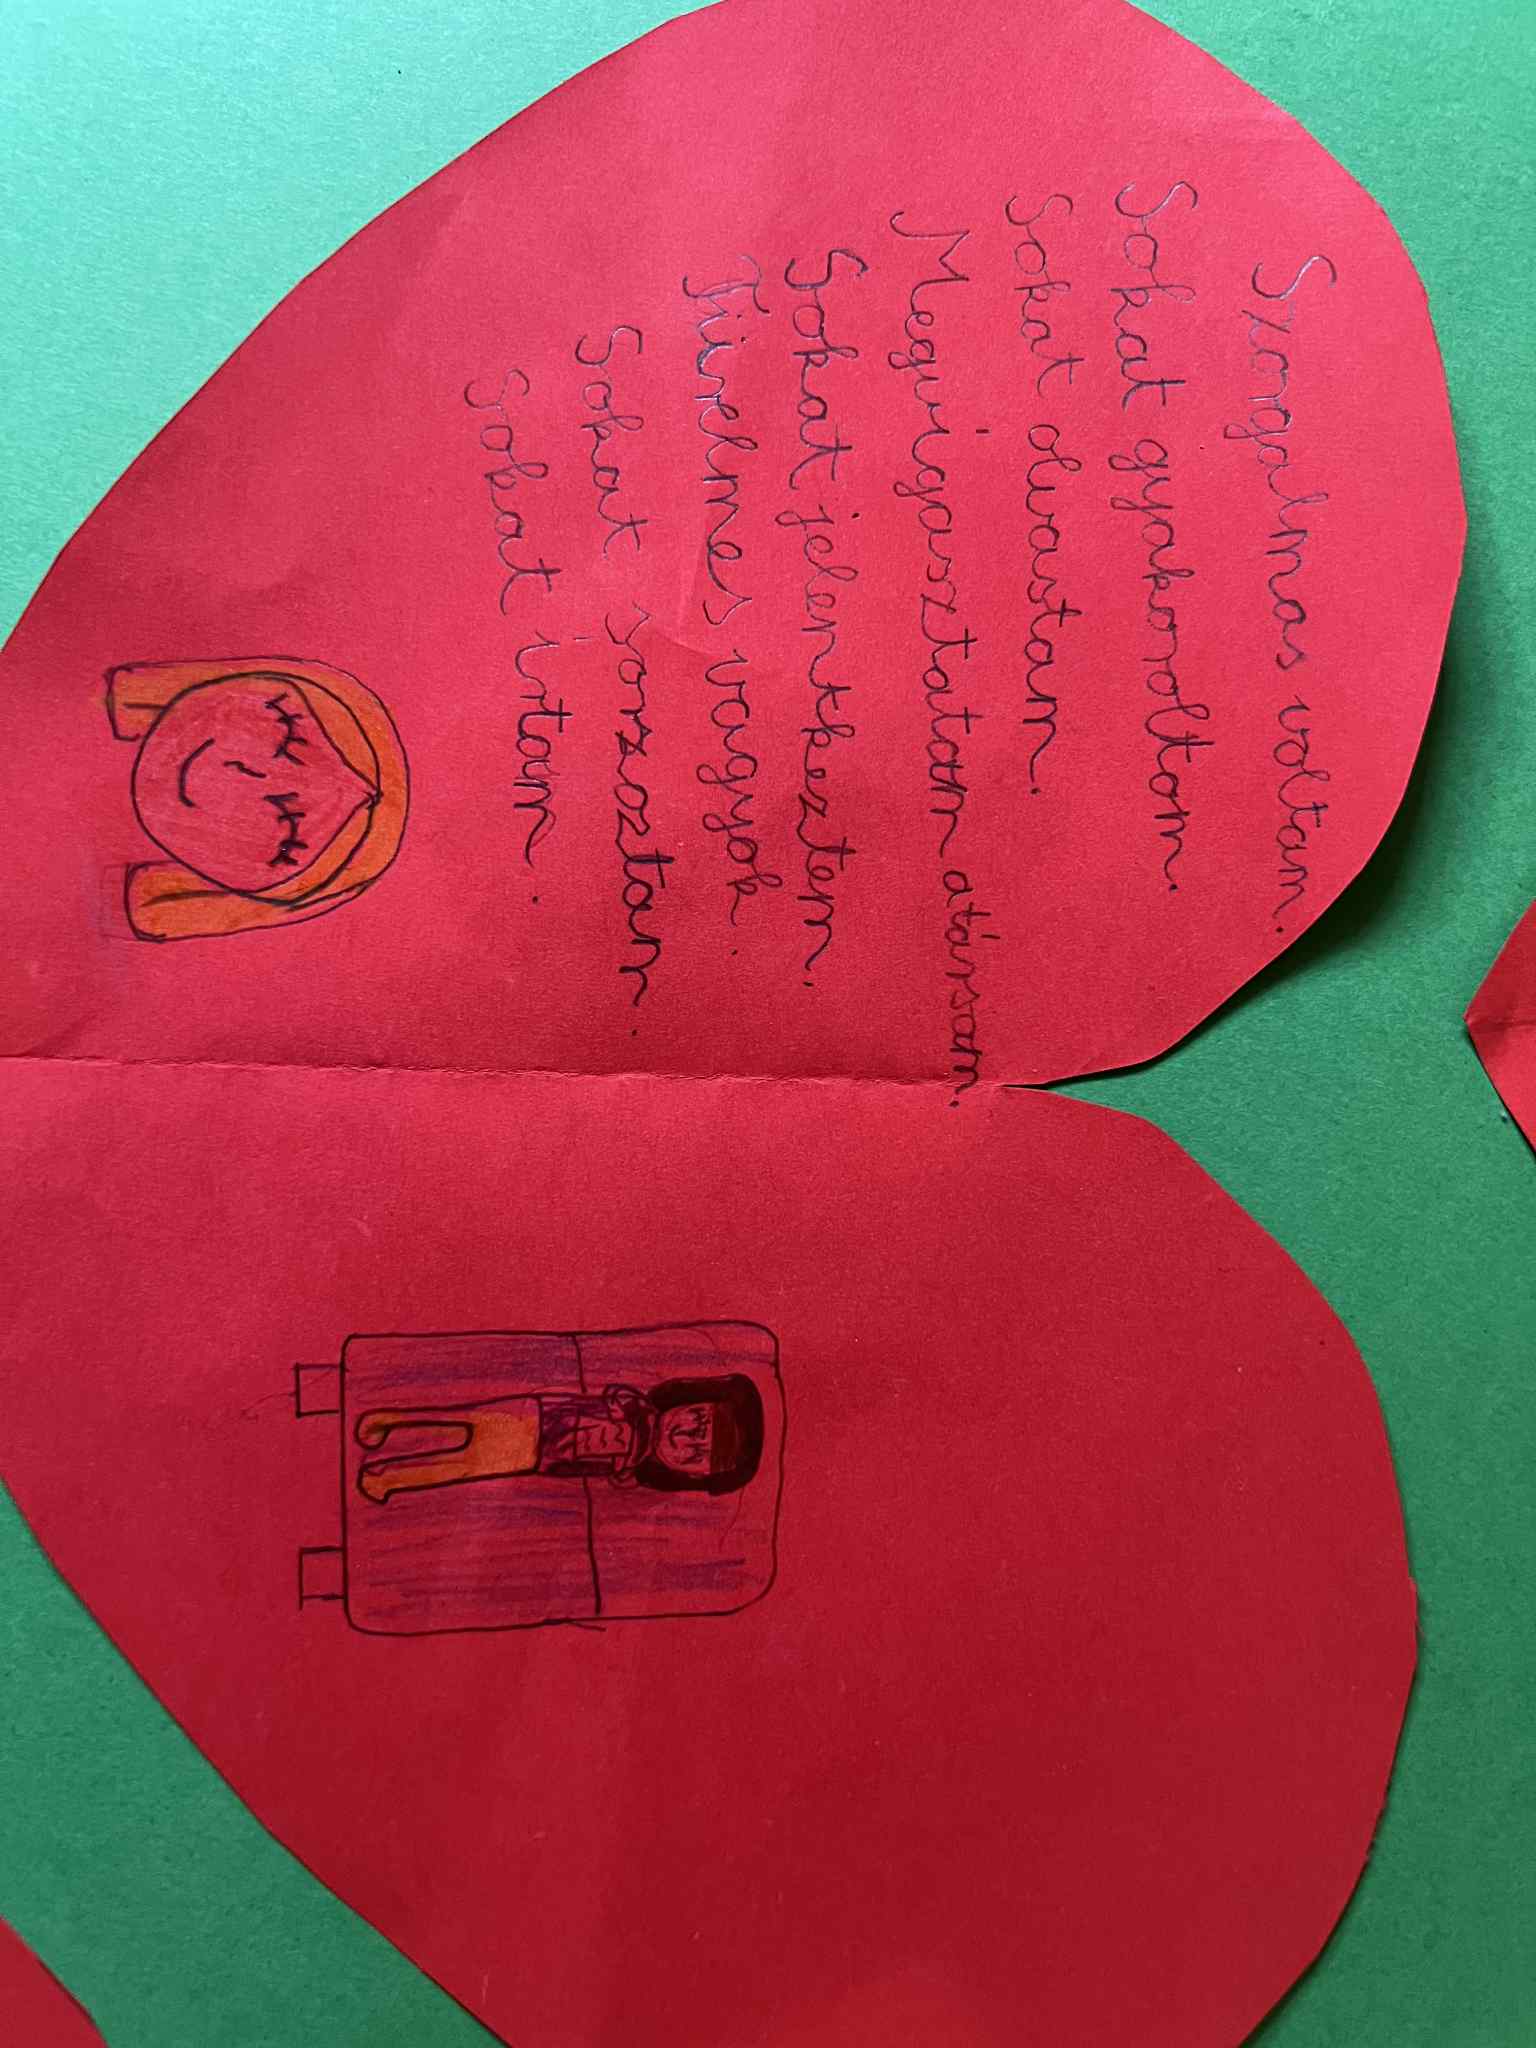 Szorgalmas voltam.
Sokat gyakoroltam.
Sokat olvastam.
Megvigasztatam a társam.
Sokat jelentkeztem.
Türelmes vagyok.
Sokat
Sokat írtam.